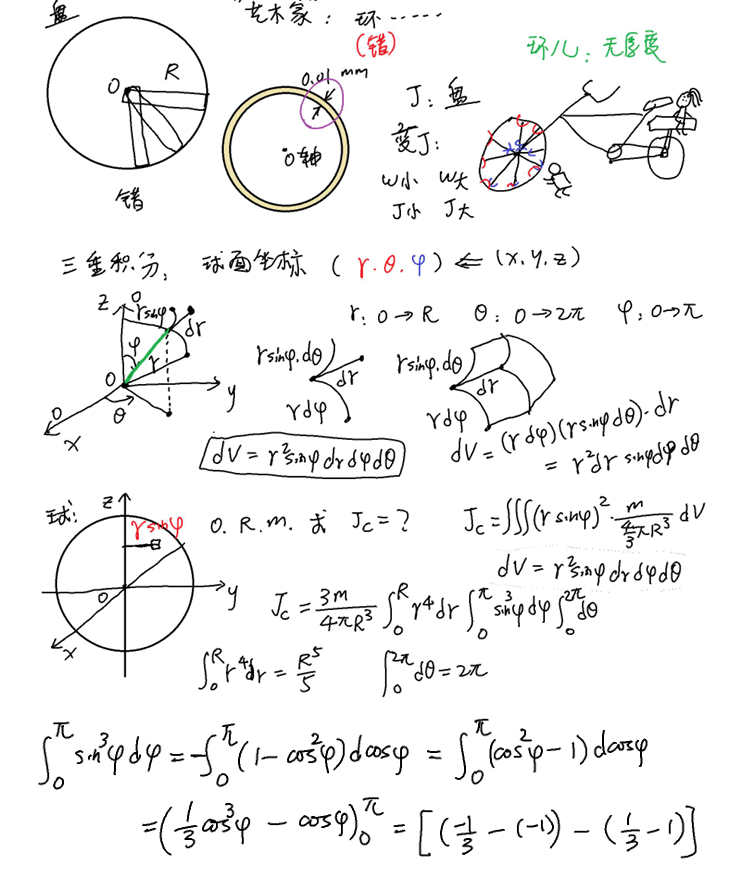 盘 "艺术家: 环……
(错) 环儿: 无厚度
R O 0.01 mm J: 盘
O 轴 变J:
错 ω小 ω大
J小 J大
三重积分, 球面坐标 (r.θ.φ) ⇐ (x.y.z)
Z O rsinφ dr r: 0→R θ: 0→2π φ: 0→π
φ r rsinφ.dθ dr rsinφ.dθ dr
O y O θ x rdφ rdφ
dV = r²sinφdrdφdθ dV = (rdφ)(rsinφdθ)·dr
= r²dr sinφdφ dθ
球: Z rsinφ O. R. m. 求 J_c = ? J_c = ∭(r sinφ)²·\frac{m}{\frac{4}{3}πR³} dV
dV = r²sinφdrdφdθ
O y x J_c = \frac{3m}{4πR³} ∫₀^R r⁴dr ∫₀^π sin³φdφ ∫₀^{2π} dθ
∫₀^R r⁴dr = \frac{R⁵}{5} ∫₀^{2π} dθ = 2π
∫₀^π sin³φdφ = -∫₀^π (1-cos²φ)dcosφ = ∫₀^π (cos²φ-1)dcosφ
= (\frac{1}{3}cos³φ - cosφ)₀^π = [(\frac{-1}{3} - (-1)) - (\frac{1}{3} - 1)]